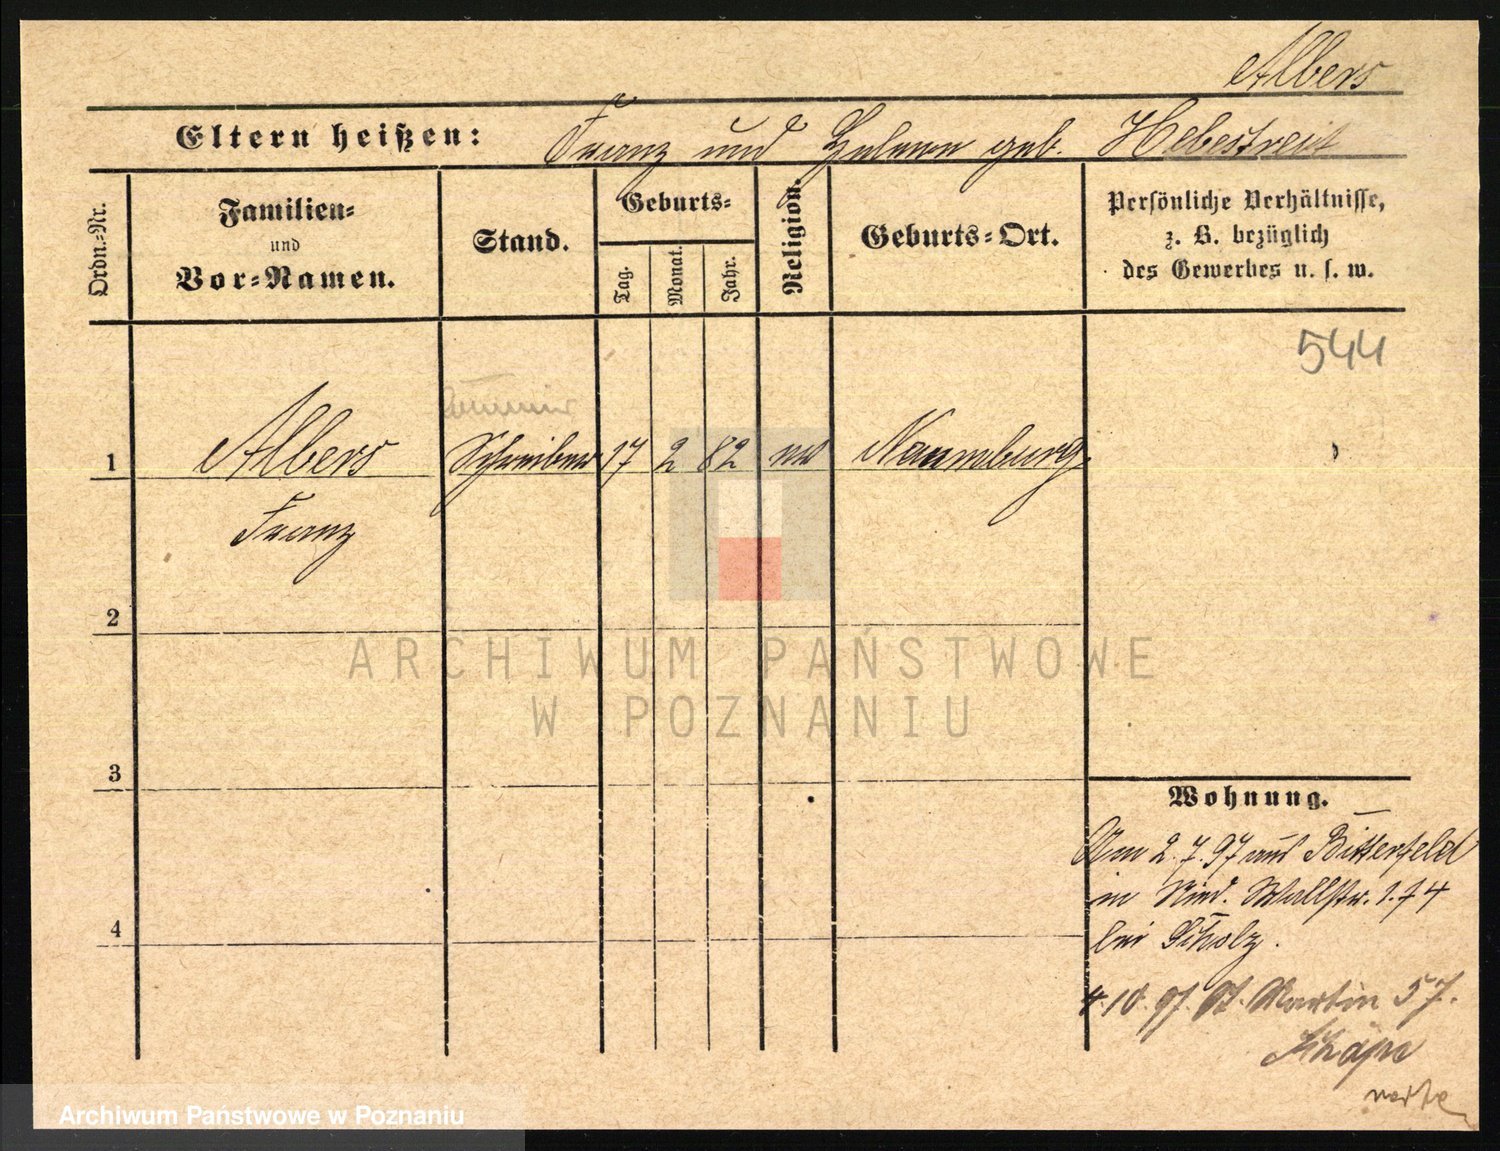 Albers
Eltern heißen: Franz und Helene geb. Hebestreit
Ordn.-Nr.
Familien-
und
Vor-Namen.
Stand.
Geburts-
Tag.
Monat.
Jahr.
Religion.
Geburts-Ort.
Persönliche Verhältnisse,
z. B. bezüglich
des Gewerbes u. s. w.
544
1 Albers Schreiber 17 2 82 Naumburg
Franz
2
3
4
ARCHIWUM PAŃSTWOWE
W POZNANIU
Wohnung.
Am 2.7.97 aus Bitterfeld
in Nied. Wallstr. 1.74
bei Scholz.
4.10.97. St. Martin 57.
Archiwum Państwowe w Poznaniu